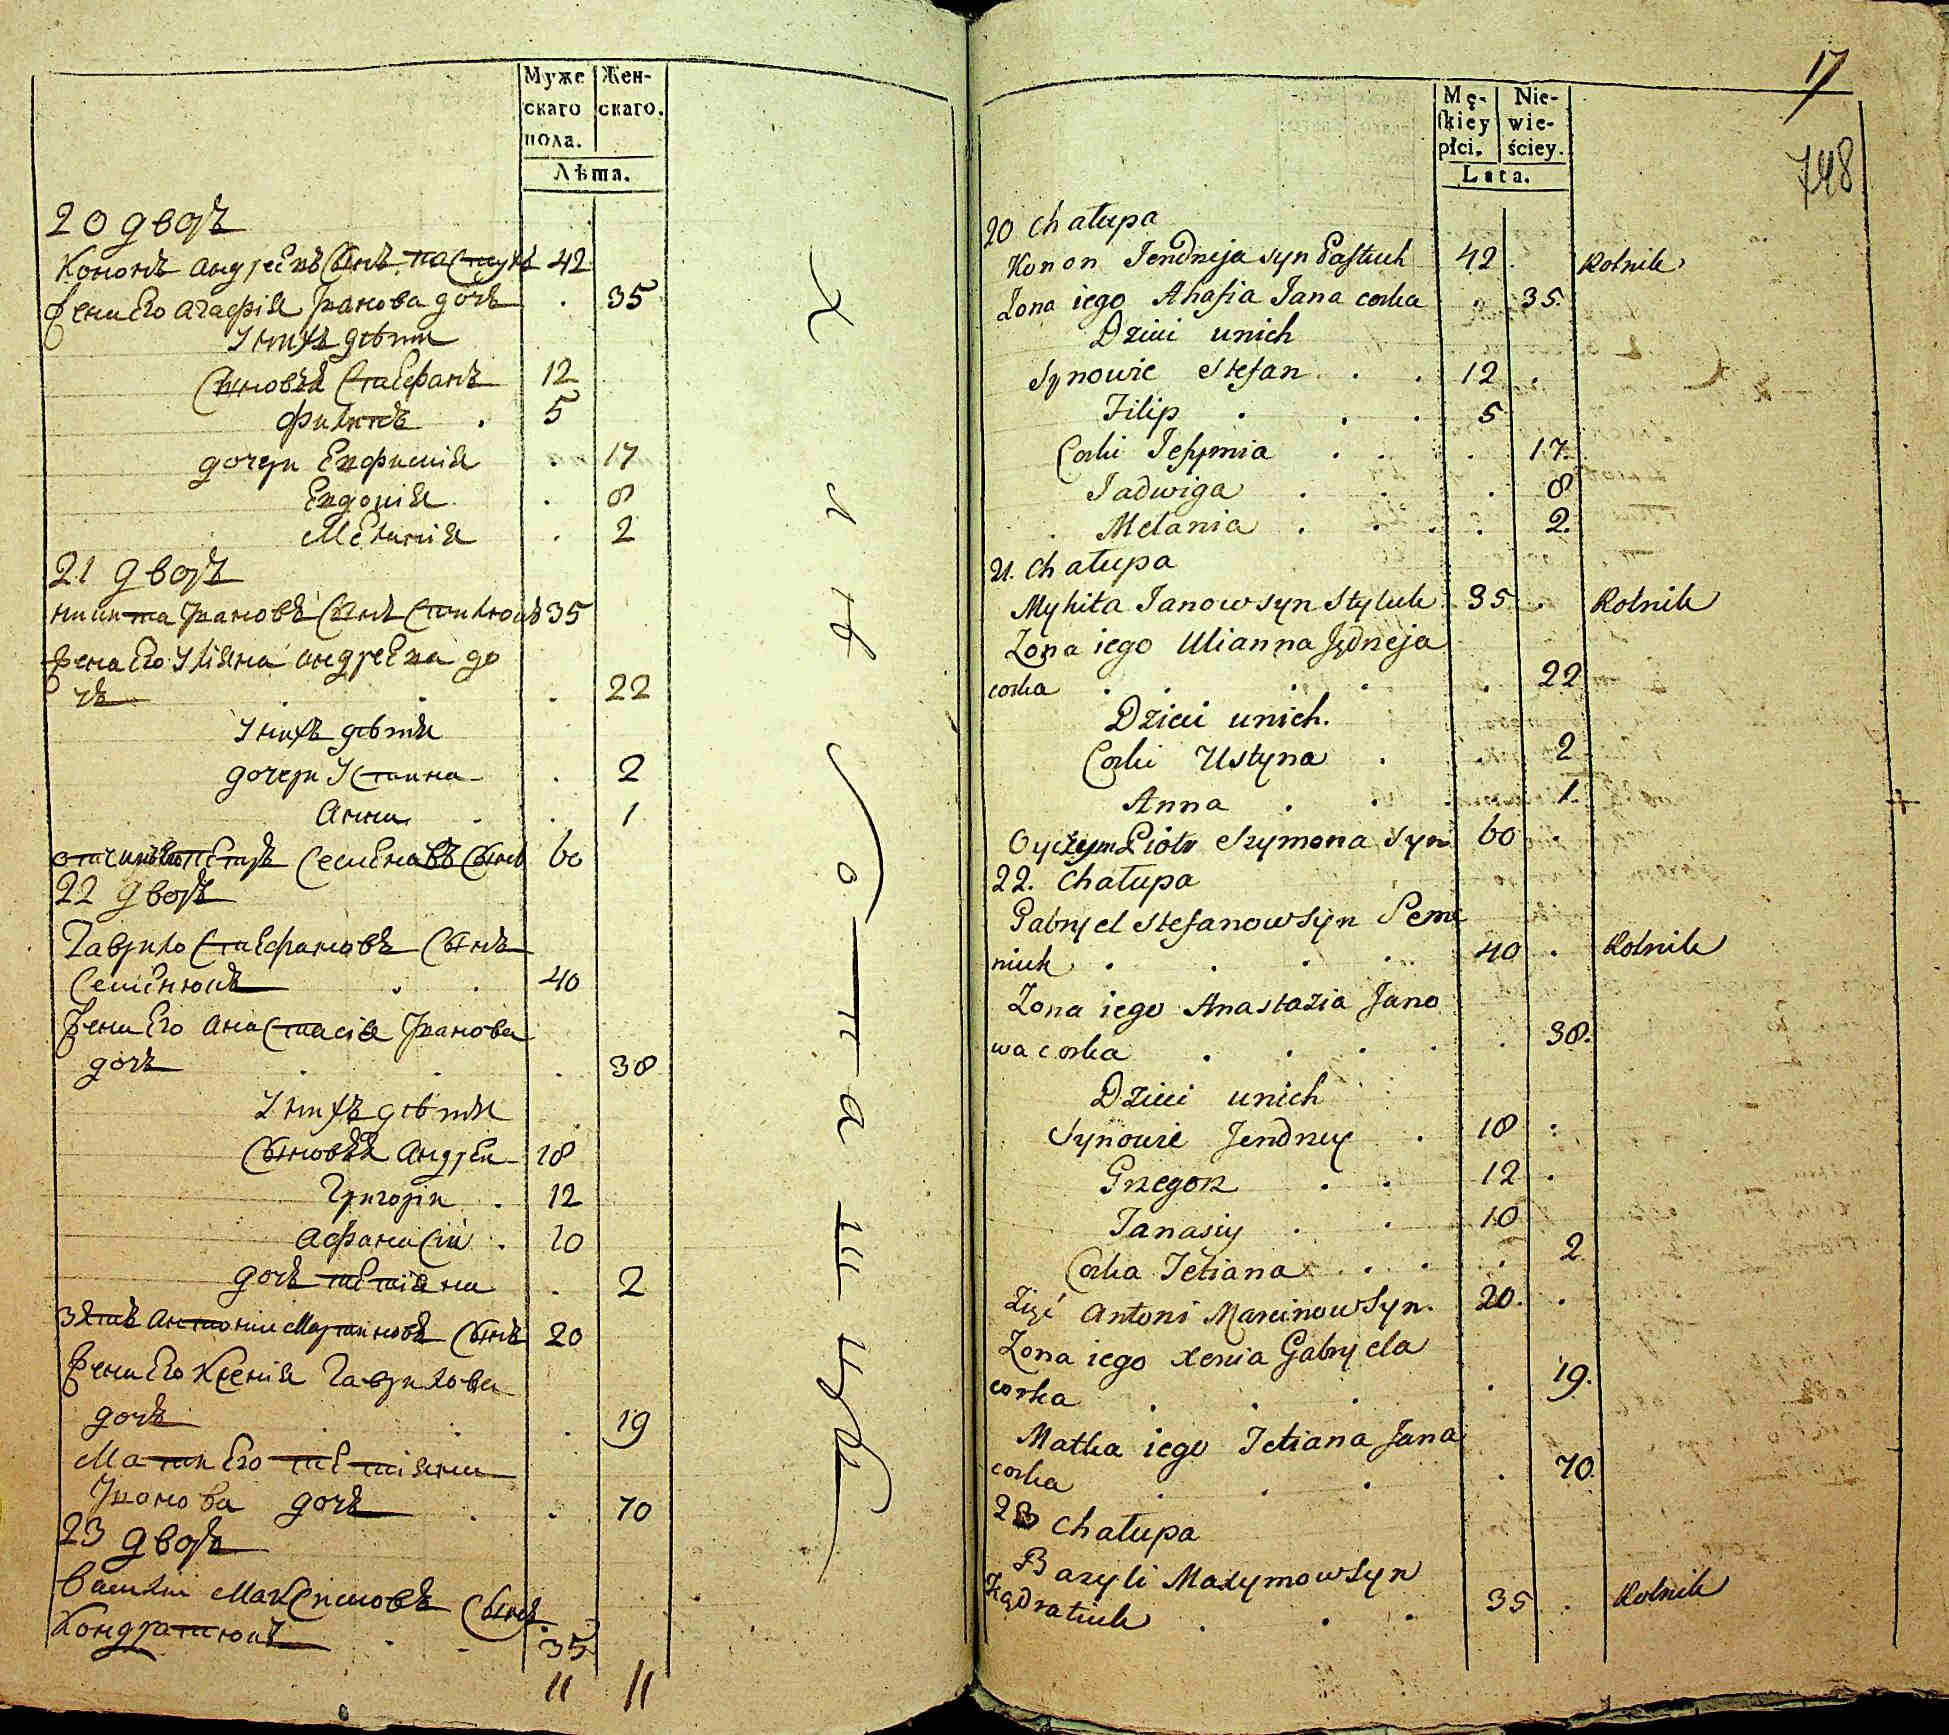 Муже
скаго
пола.
Жен-
скаго.
Лѣта.
20 дворъ
Кононъ Андреевъ сынъ Пастухъ 42
жена его Агафия Иванова дочь . 35
У нихъ дѣти
Сыновья Стефанъ 12
Филипъ . 5
дочери Евфимия . 17
Евдокия . 8
Мелания . 2
21 дворъ
Никита Ивановъ сынъ 35
жена его Улияна Андреева до
чь . . . 22
У нихъ дѣти
дочери Устина . 2
Анна . . 1
отчимъ его Петръ Семеновъ сынъ 60
22 дворъ
Гаврило Стефановъ сынъ
Семенюкъ . . 40
жена его Анастасия Иванова
дочь . . . 38
У нихъ дѣти
Сыновья Андрей 18
Григорий . 12
Афанасий . 10
дочь Тетияна . 2
Зять Антоний Мартиновъ сынъ 20
жена его Ксения Гаврилова
дочь . . . 19
Мати его Тетияна
Иванова дочь . . 70
23 дворъ
Василий Максимовъ сынъ
Кондратюкъ . . 35
11 11
17
748
Mę-
ſkiey
płci.
Nie-
wie-
ściey.
Lata.
20 Chałupa
Konon Jendrzeja syn Pastuch 42 . Rolnik
Zona iego Ahafia Jana corka . 35.
Dzieci unich
Synowie Stefan . . 12 .
Filip . . . 5
Corki Jefymia . . . 17.
Jadwiga . . . 8
Melania . . . . 2.
21. Chałupa
Mykita Janow syn Styluk 35 . Rolnik
Zona iego Ulianna Jędrzeja
corka . . . . . 22
Dzieci unich.
Corki Ustyna . . 2
Anna . . . 1.
Oyczym Piotr Szymona syn 60 .
22. Chałupa
Gabryel Stefanow syn Seme
niuk . . . . 40 . Rolnik
Zona iego Anastazia Jano
wa corka . . . . . 38.
Dzieci unich
Synowie Jendrzey . 18 .
Grzegorz . . 12 .
Tanasiy . . 10
Corka Tetiana . . . 2
Zięć Antoni Marcinow syn. 20. .
Zona iego Xenia Gabryela
corka . . . . 19.
Matka iego Tetiana Jana
corka . . . . 70.
23 Chałupa
Bazyli Maxymow syn
Kądratiuk . . . 35 . Rolnik